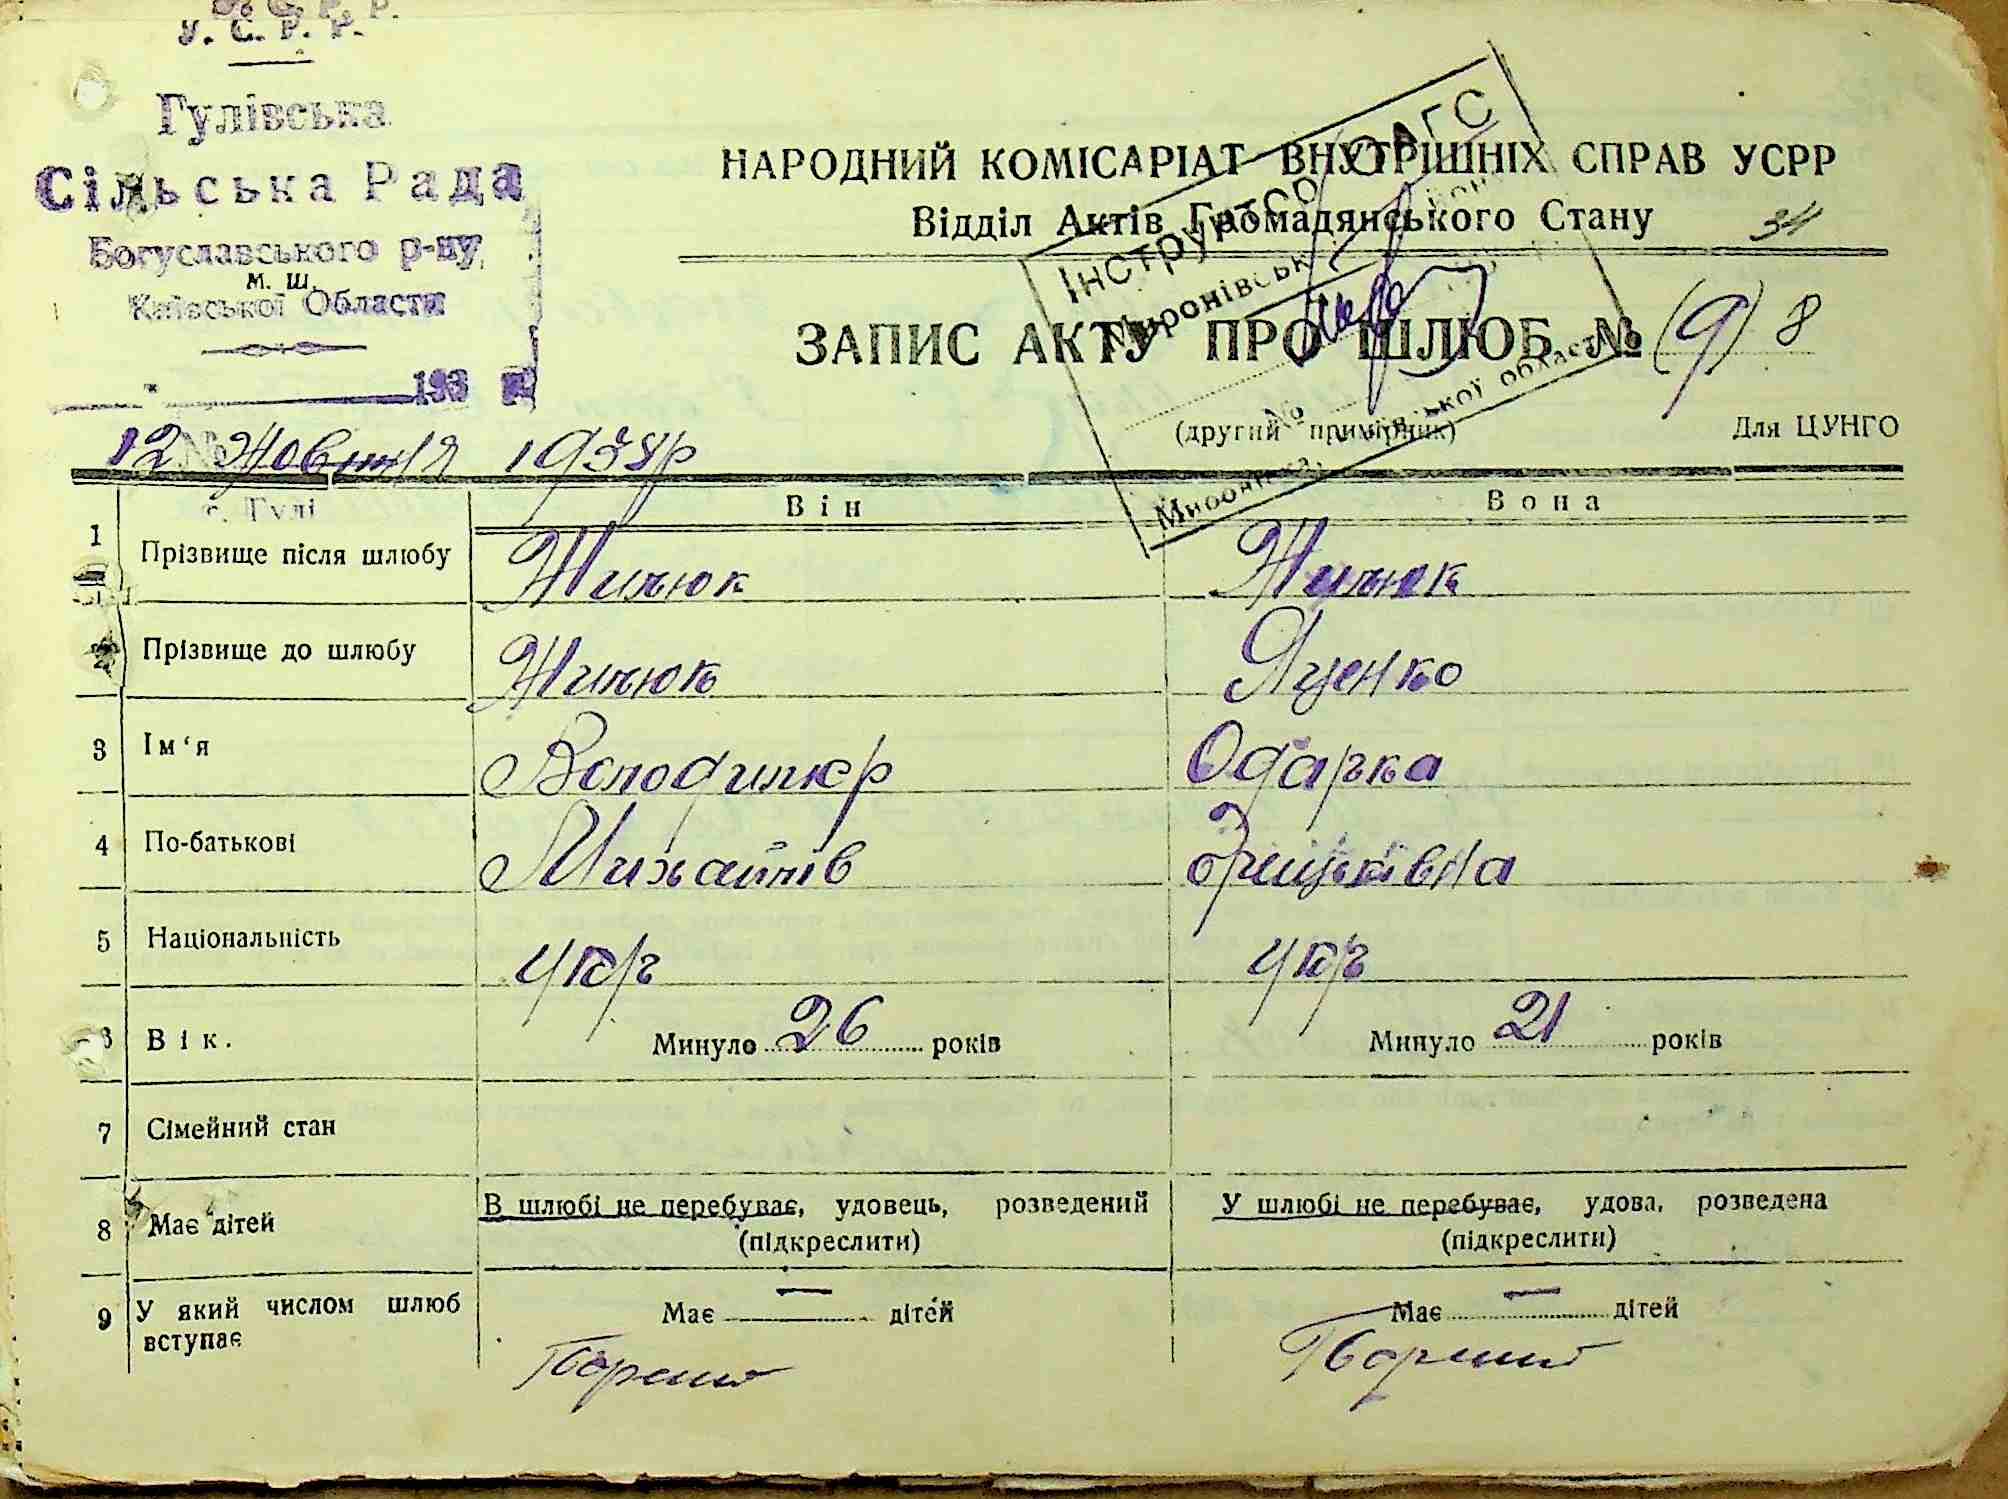 У. С. Р. Р.
Гулівська
Сільська Рада
Богуславського р-ну
м. ш.
Київської Області
193
НАРОДНИЙ КОМІСАРІАТ ВНУТРІШНІХ СПРАВ УСРР
Відділ Актів Громадянського Стану
34
ЗАПИС АКТУ ПРО ШЛЮБ № (9) 8
(другий примірник)
Для ЦУНГО
Інструктор ЗАГС
Миронівськ
12 Жовтня 1934р
с. Гулі
Він Вона
1 Прізвище після шлюбу Жилюк Жилюк
2 Прізвище до шлюбу Жилюк Яценко
3 Ім'я Володимир Одарка
4 По-батькові Михайлів Грицьківна
5 Національність укр укр
6 Вік. Минуло 26 років Минуло 21 років
7 Сімейний стан
8 Має дітей В шлюбі не перебуває, удовець, розведений У шлюбі не перебуває, удова, розведена
(підкреслити) (підкреслити)
9 У який числом шлюб вступає Має — дітей Має — дітей